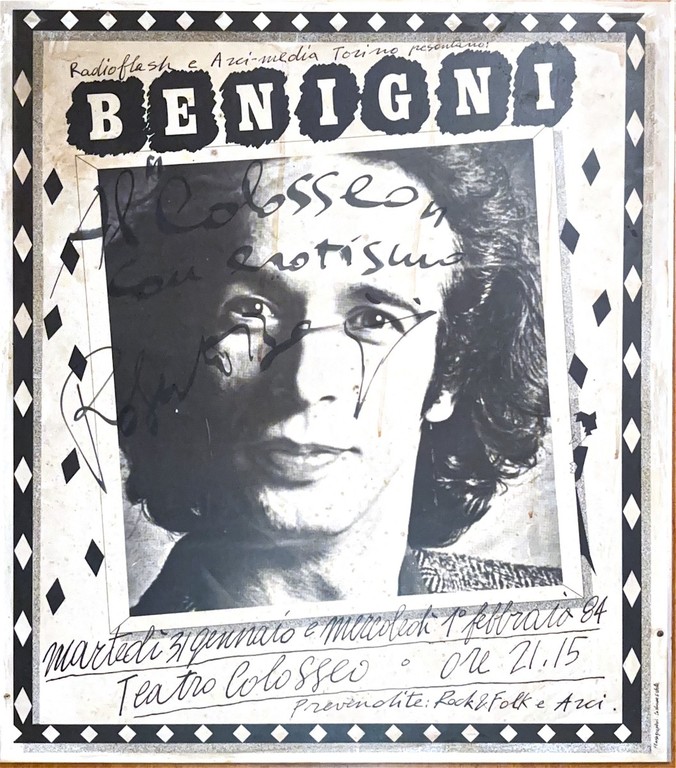 Radioflash e Arci-media Torino presentano:
BENIGNI
Al Colosseo
con erotismo
Roberto Benigni
martedì 31 gennaio e mercoledì 1° febbraio 84
Teatro Colosseo o ore 21.15
Prevendite: Rock & Folk e Arci.